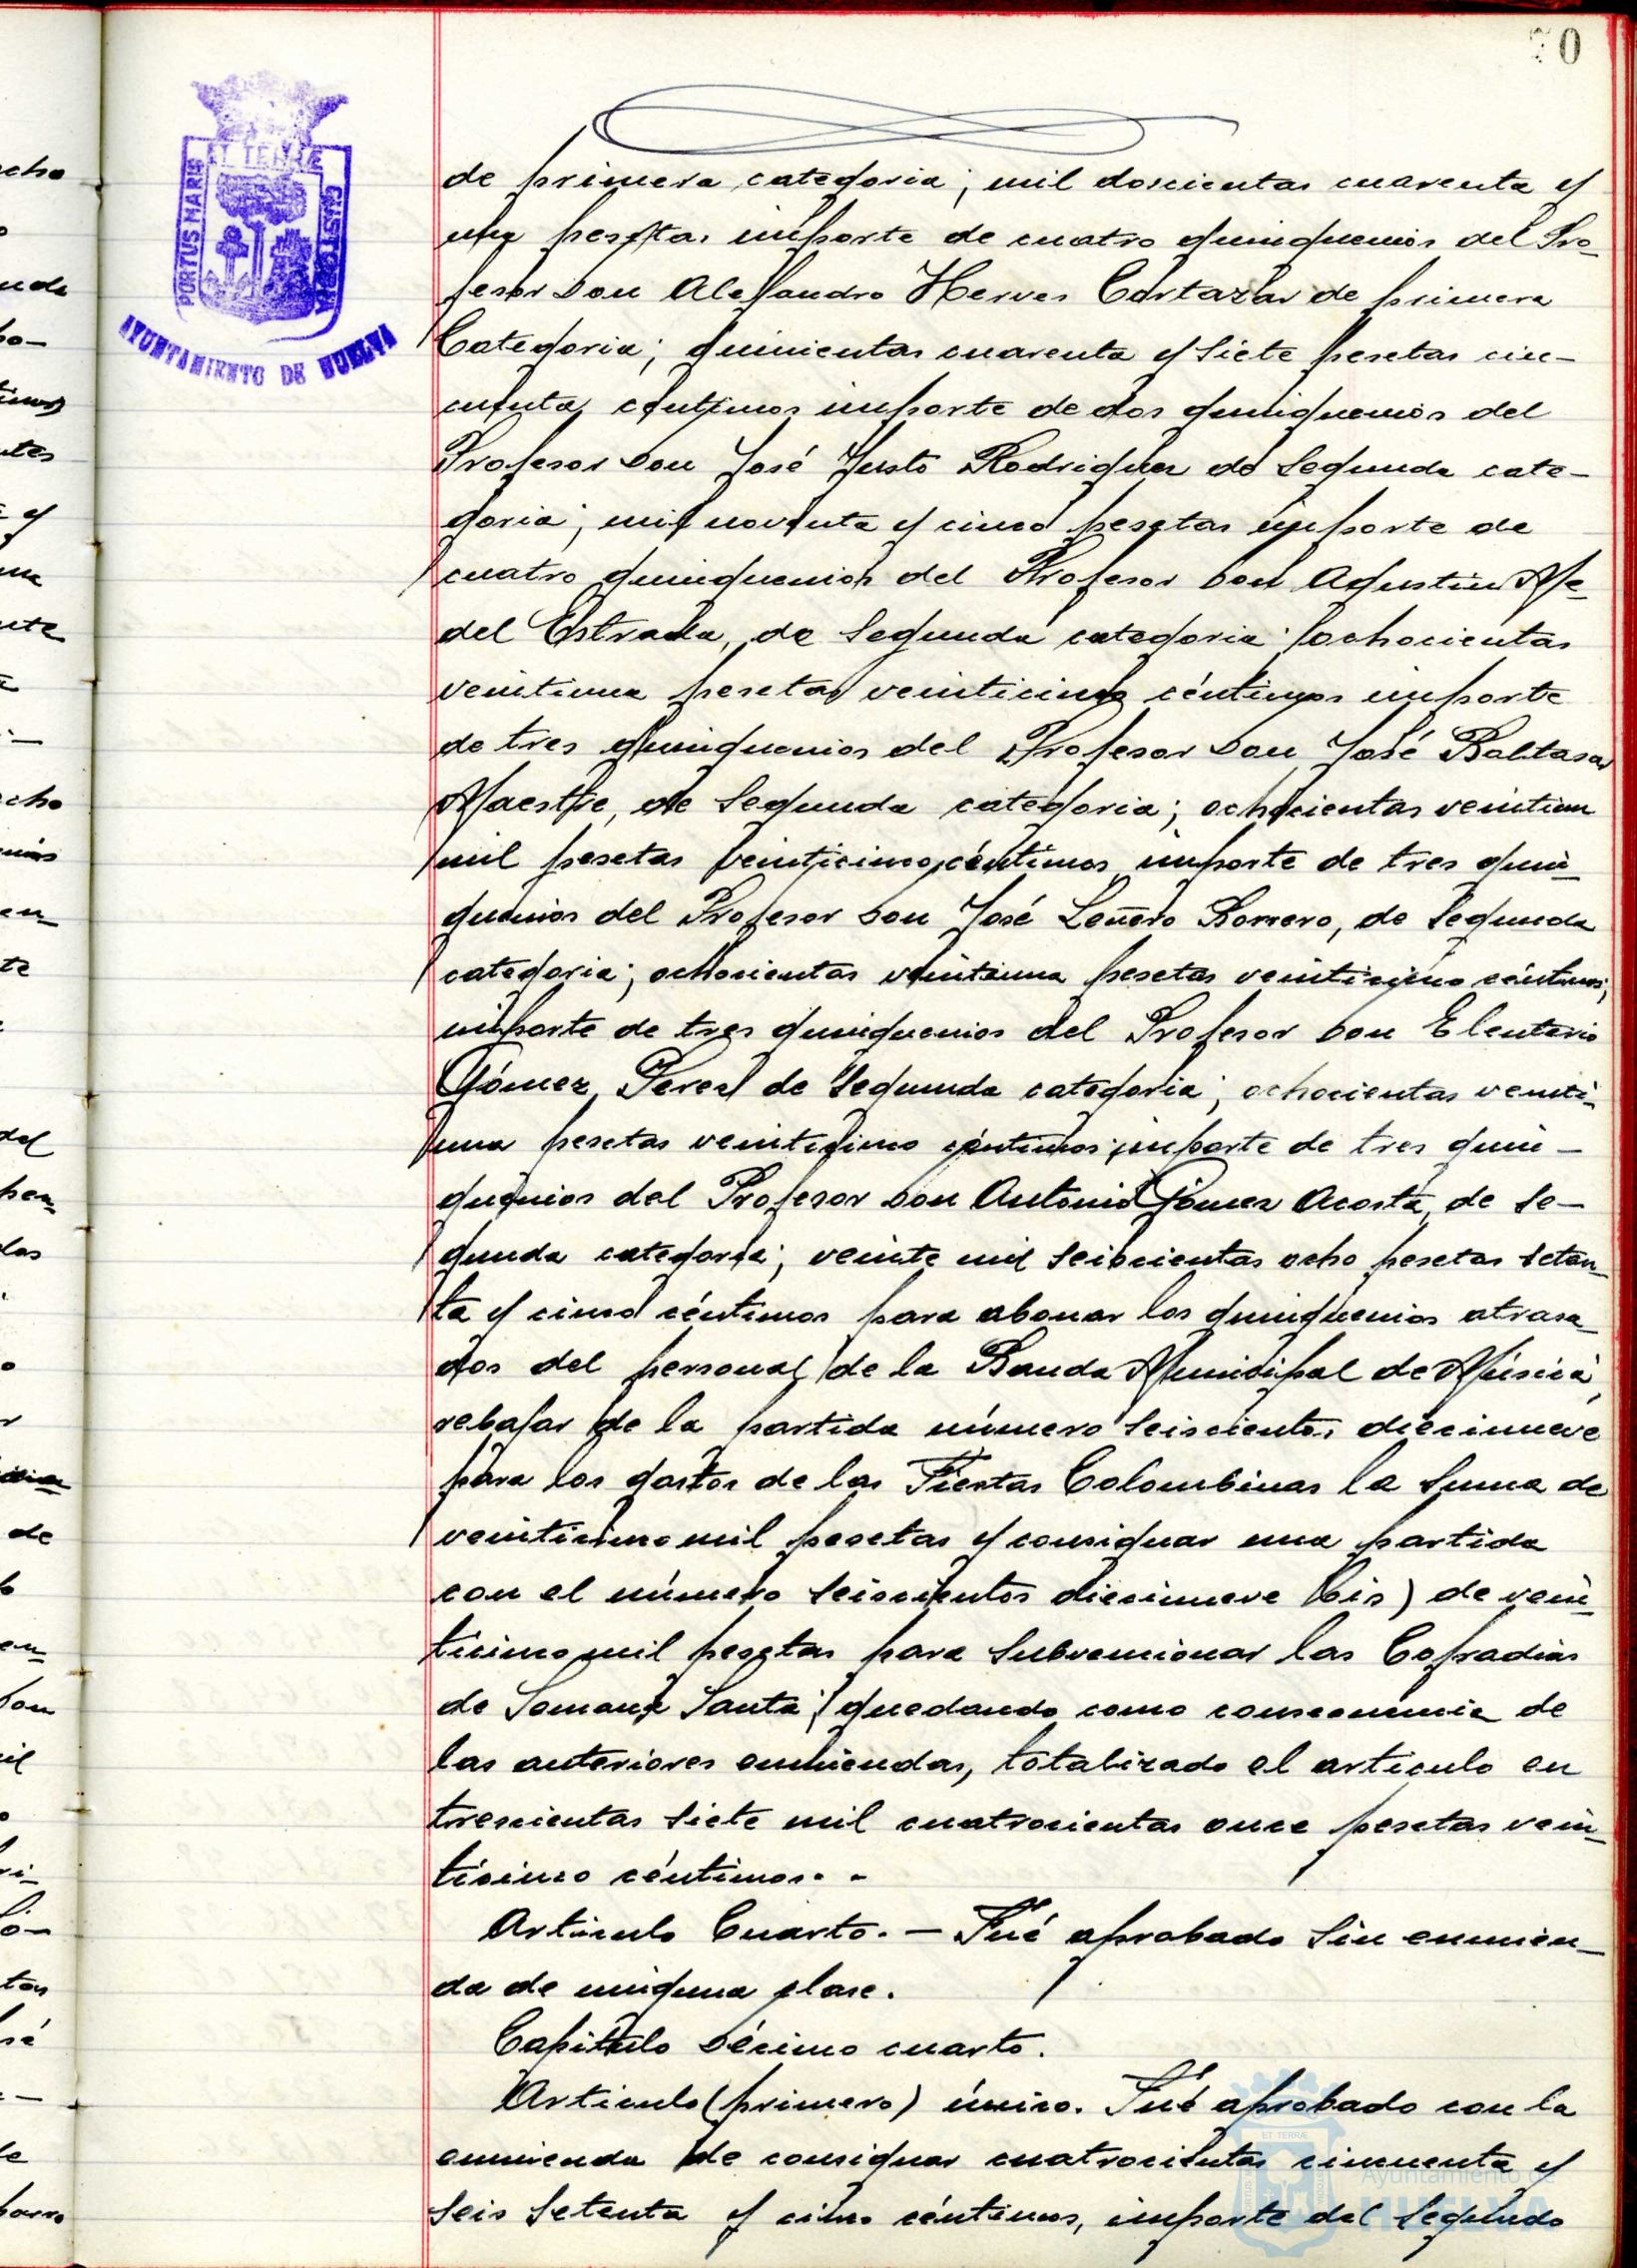 70
ET TERRÆ
PORTUS MARIS
CUSTODIA
AYUNTAMIENTO DE HUELVA
de primera categoria; mil doscientas cuarenta y
una pesetas importe de cuatro quinquenios del Pro-
fesor Don Alejandro Herves Cortazar de primera
Categoria; quinientas cuarenta y siete pesetas cin-
cuenta céntimos importe de dos quinquenios del
Profesor Don José Justo Rodriguez de segunda cate-
goria; mil noventa y cinco pesetas importe de
cuatro quinquenios del Profesor Don Agustin Me-
del Estrada, de segunda categoria; ochocientas
veintiuna pesetas veinticinco céntimos importe
de tres quinquenios del Profesor Don José Baltasar
Maestre, de segunda categoria; ochocientas veintiun
mil pesetas veinticinco céntimos importe de tres quin-
quenios del Profesor Don José Leñero Borrero, de segunda
categoria; ochocientas veintiuna pesetas veinticinco céntimos,
importe de tres quinquenios del Profesor Don Eleuterio
Gómez Perez de segunda categoria; ochocientas veinti-
una pesetas veinticinco céntimos importe de tres quin-
quenios del Profesor Don Antonio Gómez Acosta, de se-
gunda categoria; veinte mil seiscientas ocho pesetas seten-
ta y cinco céntimos para abonar los quinquenios atrasa-
dos del personal de la Banda Municipal de Música,
rebajar de la partida número seiscientos diecinueve
para los gastos de las Fiestas Colombinas la suma de
veinticinco mil pesetas y consignar una partida
con el número seiscientos diecinueve (bis) de vein-
ticinco mil pesetas para subvencionar las Cofradias
de Semana Santa; quedando como consecuencia de
las anteriores enmiendas, totalizado el articulo en
trescientas siete mil cuatrocientas once pesetas vein-
ticinco céntimos.-
Articulo Cuarto.- Fué aprobado sin enmien-
da de ninguna clase.
Capitulo Décimo cuarto.
Articulo (primero) único. Fué aprobado con la
enmienda de consignar cuatrocientas cincuenta y
seis setenta y cinco céntimos, importe del segundo
Ayuntamiento de
HUELVA